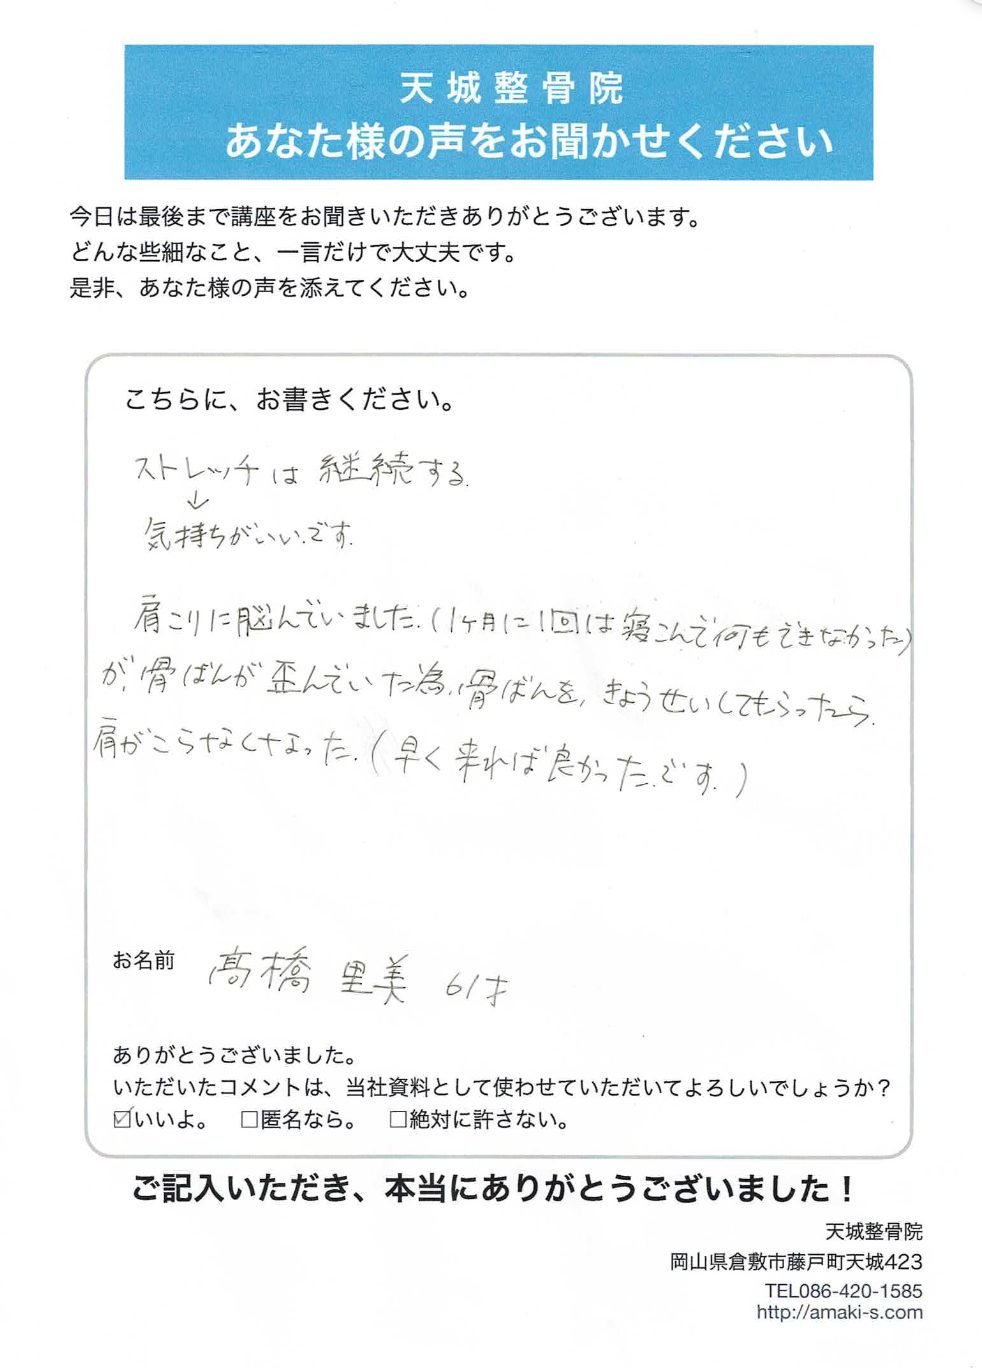 天城整骨院
あなた様の声をお聞かせください
今日は最後まで講座をお聞きいただきありがとうございます。
どんな些細なこと、一言だけで大丈夫です。
是非、あなた様の声を添えてください。
こちらに、お書きください。
ストレッチは継続する。
↓
気持ちがいいです。
肩こりに脳んでいました。(1ヶ月に1回は寝こんで何もできなかった)
が、骨ばんが歪んでいた為、骨ばんを、きょうせいしてもらったら、
肩がこらなくなった。(早く来れば良かったです。)
お名前 髙橋 里美 61才
ありがとうございました。
いただいたコメントは、当社資料として使わせていただいてよろしいでしょうか？
☑いいよ。 □匿名なら。 □絶対に許さない。
ご記入いただき、本当にありがとうございました！
天城整骨院
岡山県倉敷市藤戸町天城423
TEL086-420-1585
http://amaki-s.com